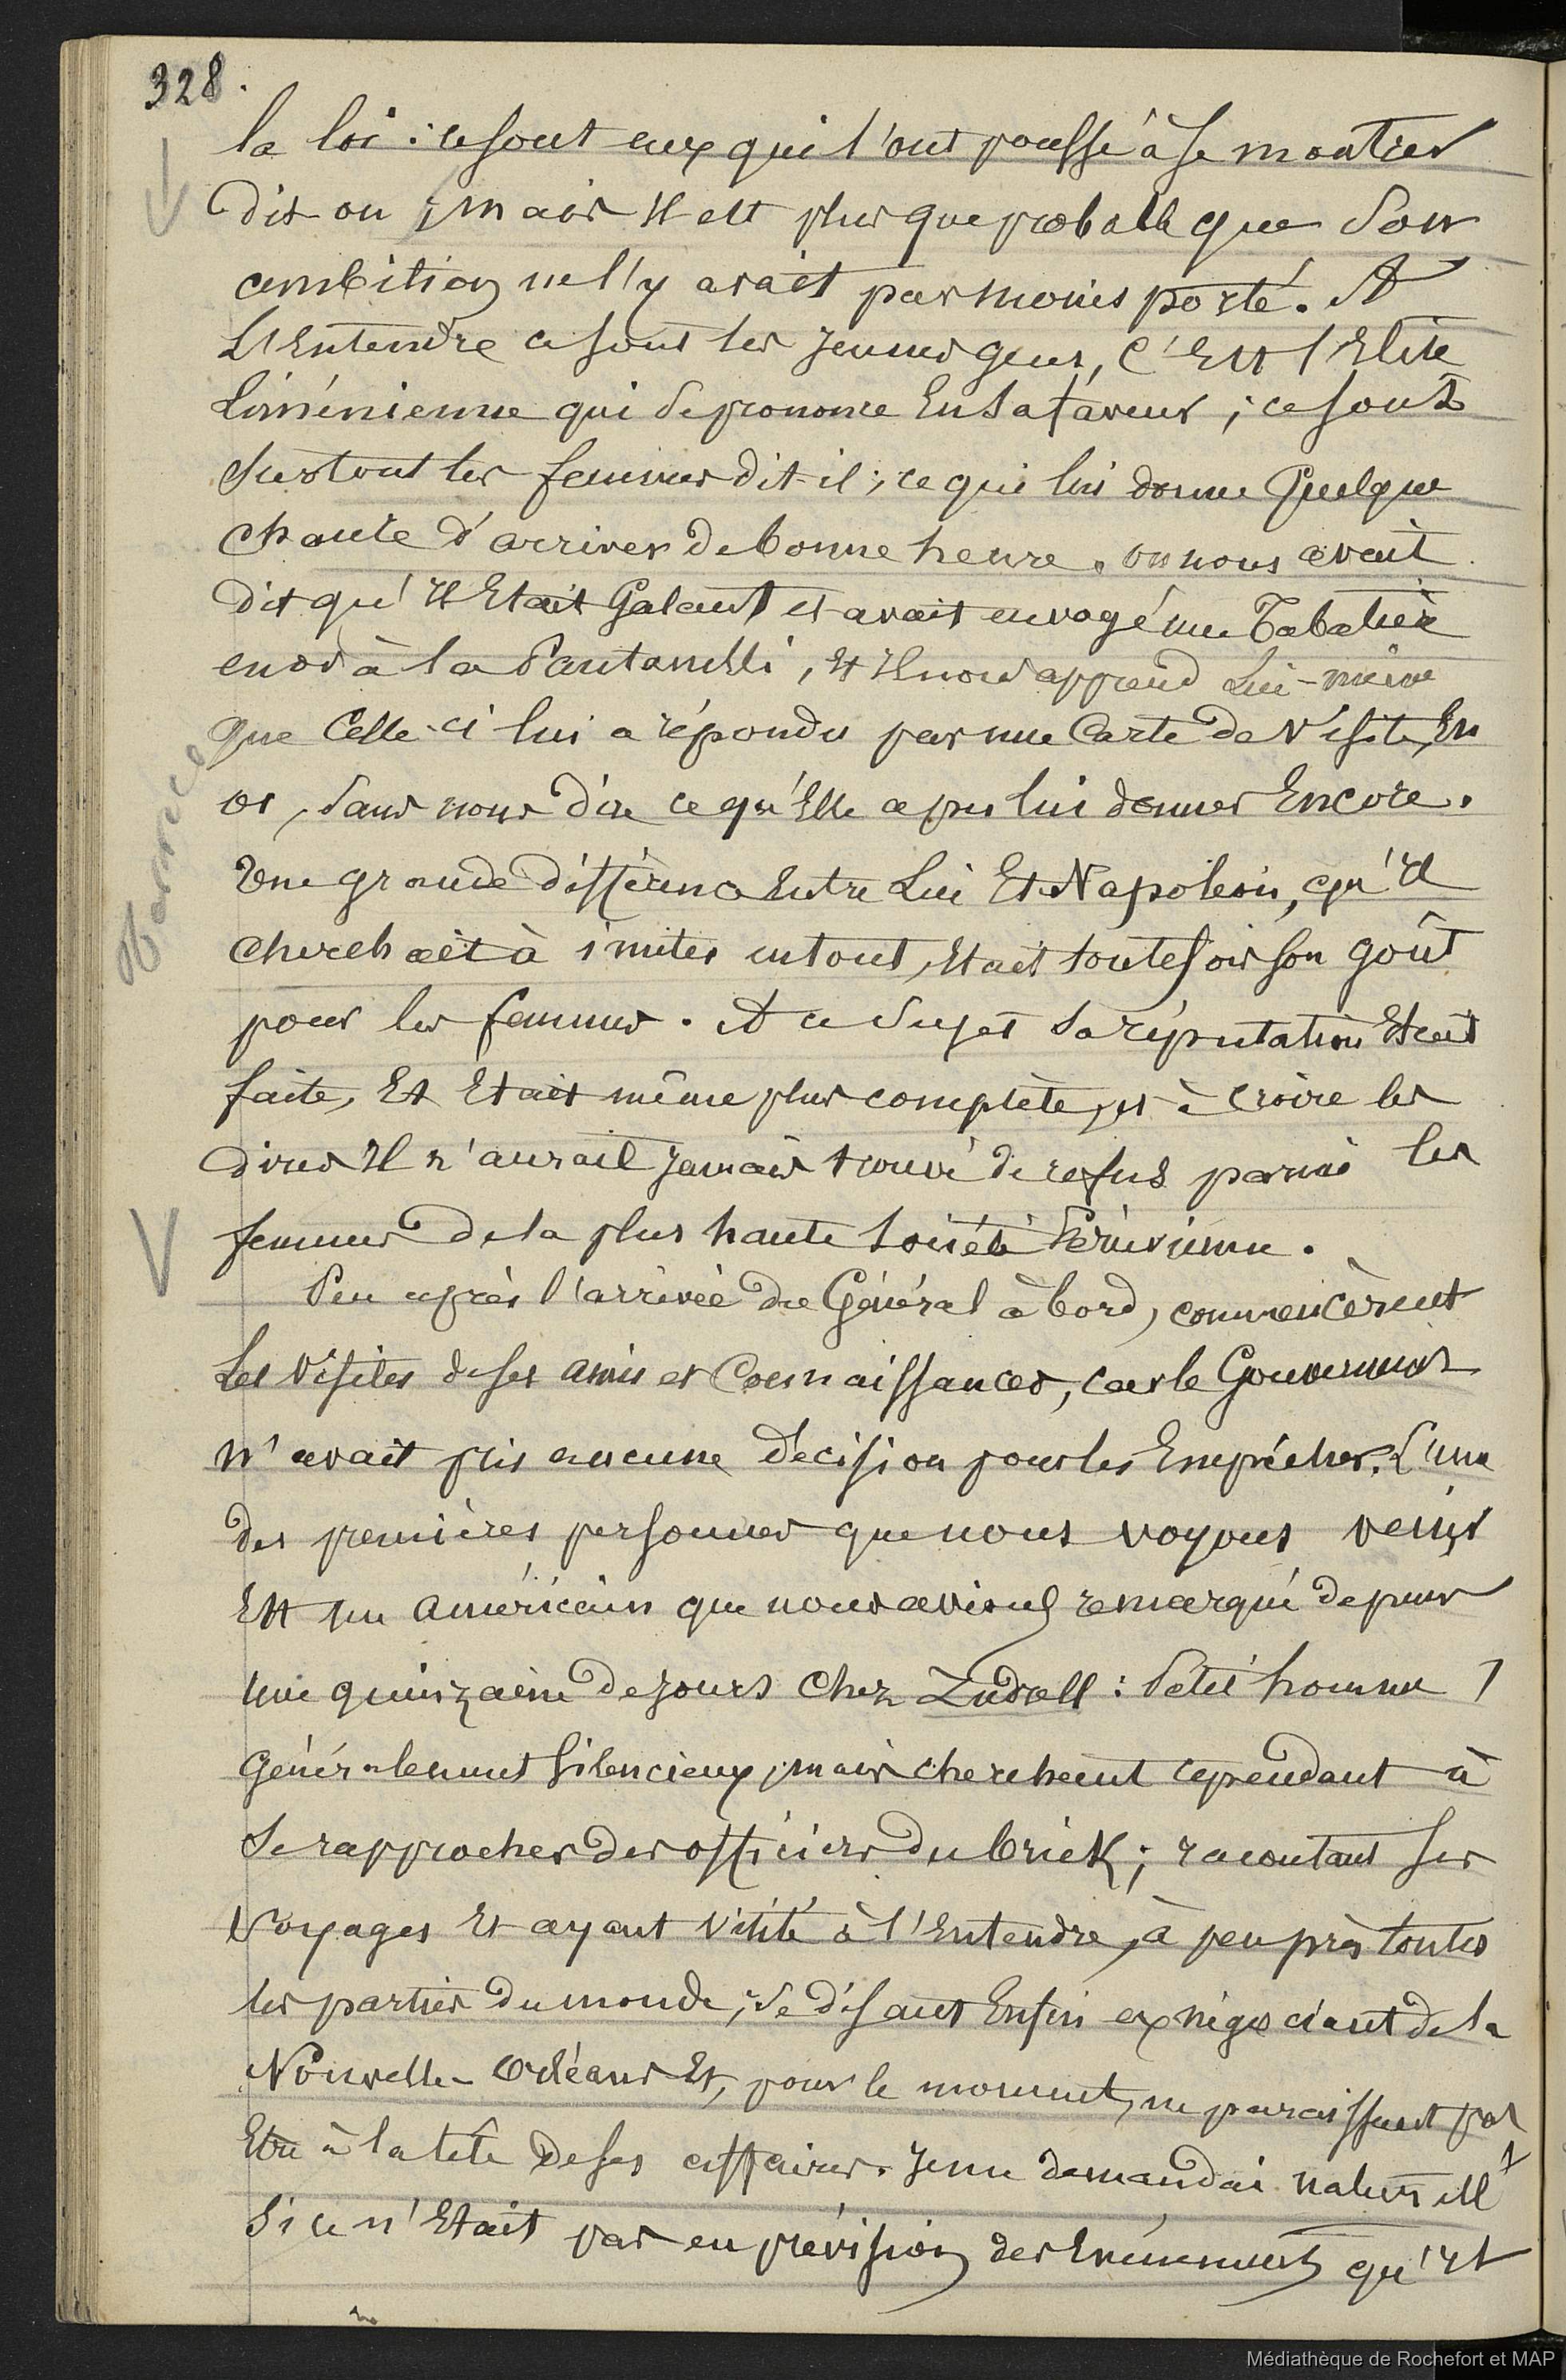 328.
la loi : ce sont eux qui l'ont poussé à se montrer
dit on ; mais Il est plus que probable que son
ambition ne l'y avait pas moins porté. A
L'Entendre ce sont les jeunes gens, C'Est l'Elite
Liménienne qui se prononce En sa faveur ; ce sont
surtout les femmes dit-il ; ce qui lui donne Quelque
chance d'arriver de bonne heure. on nous avait
dit qu'Il Etait Galant et avait envoyé une Tabatière
en or à la Pantanelli, Et Il nous apprend Lui-même
que Celle-ci lui a répondu par une Carte de Visite, En
or, sans nous dire ce qu'Elle a pu lui donner Encore.
Une grande différence Entre Lui Et Napoléon, qu'Il
cherchait à imiter en tout, Etait toutefois son goût
pour les femmes. A ce sujet sa réputation Etait
faite, Et Etait même plus complète, et à croire les
dires Il n'aurait jamais trouvé de refus parmi les
femmes de la plus haute société Péruvienne.
Peu après l'arrivée du Général à bord, commencèrent
Les Visites de ses amis et Connaissances, car le Gouverneur
n'avait pris aucune décision pour les Empêcher. L'une
des premières personnes que nous voyons venir
Est un américain que nous avions remarqué depuis
une quinzaine de jours chez : Petit homme
Généralement silencieux, mais cherchant cependant à
se rapprocher des officiers du brick ; racontant ses
Voyages Et ayant visité à l'Entendre, à peu près toutes
les parties du monde ; se disant Enfin ex négociant de la
Nouvelle-Orléans Et, pour le moment, ne paraissant pas
Etre à la tête de ses affaires. Je me demandai naturellt
si ce n'Etait pas en prévision des Evénements qu'Il